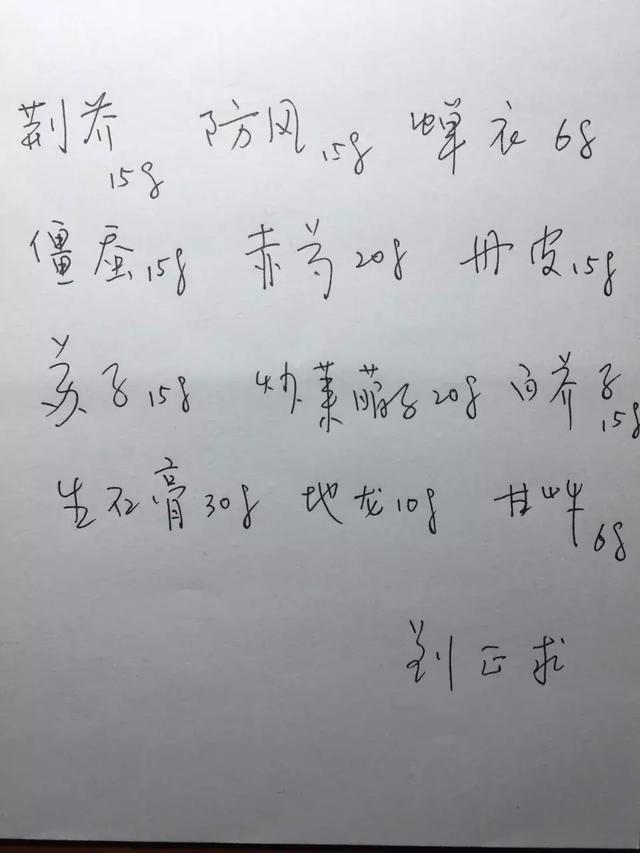 荆芥15g 防风15g 蝉衣6g
僵蚕15g 赤芍20g 丹皮15g
苏子15g 炒莱菔子20g 白芥子15g
生石膏30g 地龙10g 甘草6g
刘正求